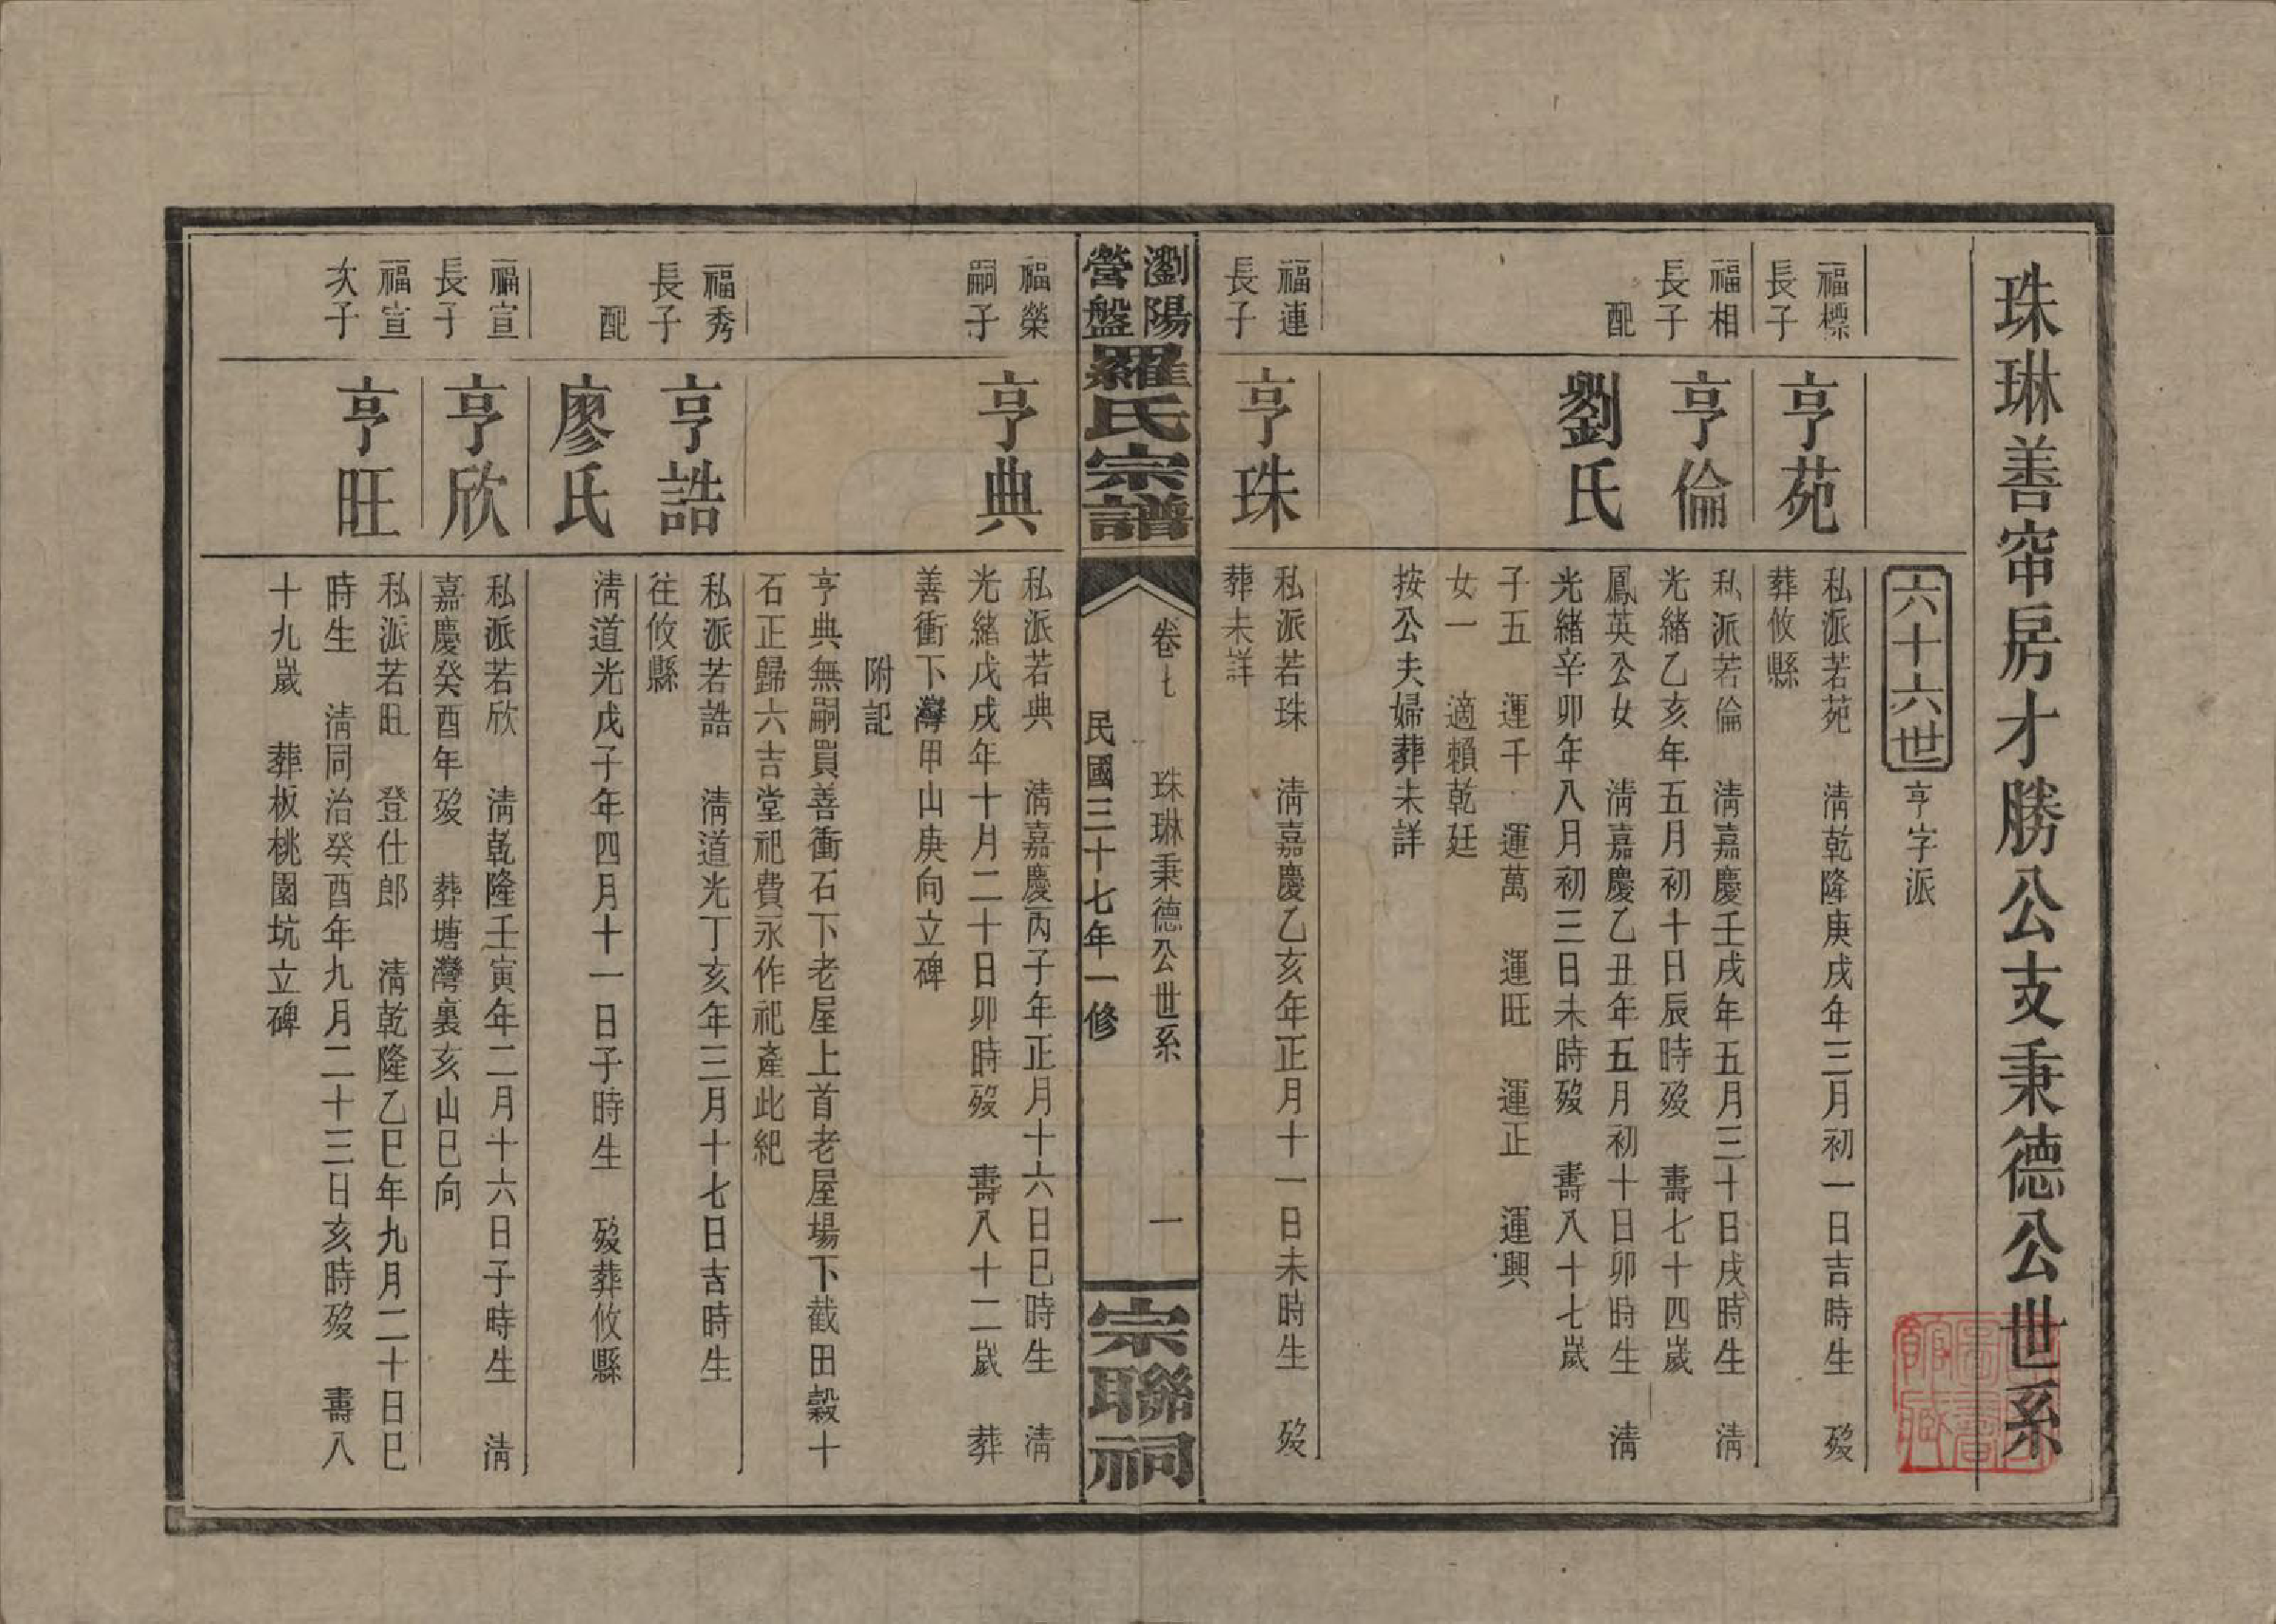 珠琳善窋房才勝公支秉德公世系
六十六世 亨字派
福標
長子
亨苑
私派若苑 淸乾隆庚戌年三月初一日吉時生 歿
葬攸縣
福相
長子
亨倫
私派若倫 淸嘉慶壬戌年五月三十日戌時生 淸
光緖乙亥年五月初十日辰時歿 壽七十四歲
配
劉氏
鳳英公女 淸嘉慶乙丑年五月初十日卯時生 淸
光緖辛卯年八月初三日未時歿 壽八十七歲
子五 運千 運萬 運旺 運正 運興
女一 適賴乾廷
按公夫婦葬未詳
福連
長子
亨珠
私派若珠 淸嘉慶乙亥年正月十一日未時生 歿
葬未詳
瀏陽
營盤
羅氏宗譜
卷七 珠琳秉德公世系 一
民國三十七年一修
宗聯祠
福榮
嗣子
亨典
私派若典 淸嘉慶丙子年正月十六日巳時生 淸
光緖戊戌年十月二十日卯時歿 壽八十二歲 葬
善衝下灣甲山庚向立碑
附記
亨典無嗣買善衝石下老屋上首老屋場下截田穀十
石正歸六吉堂祀費永作祀產此紀
福秀
長子
亨誥
私派若誥 淸道光丁亥年三月十七日吉時生
往攸縣
配
廖氏
淸道光戊子年四月十一日子時生 歿葬攸縣
福宣
長子
亨欣
私派若欣 淸乾隆壬寅年二月十六日子時生 淸
嘉慶癸酉年歿 葬塘灣裏亥山巳向
福宣
次子
亨旺
私派若旺 登仕郎 淸乾隆乙巳年九月二十日巳
時生 淸同治癸酉年九月二十三日亥時歿 壽八
十九歲 葬板桃園坑立碑